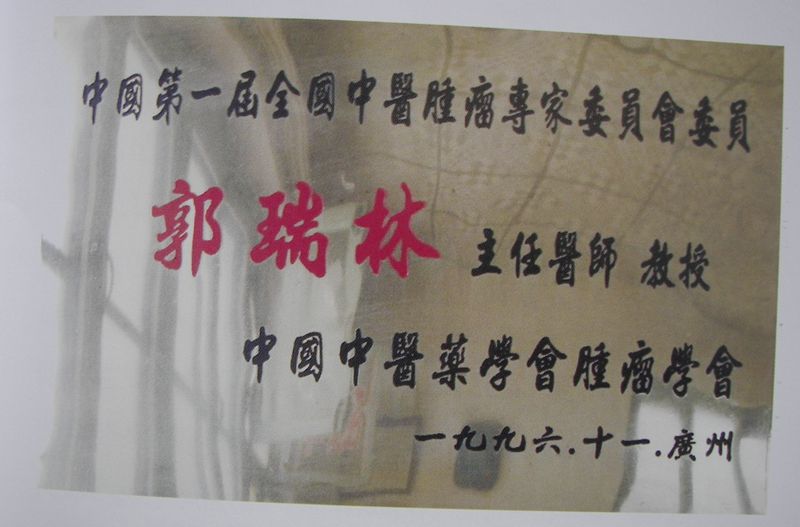 中國第一屆全國中醫腫瘤專家委員會委員
郭瑞林 主任醫師 教授
中國中醫藥學會腫瘤學會
一九九六.十一.廣州